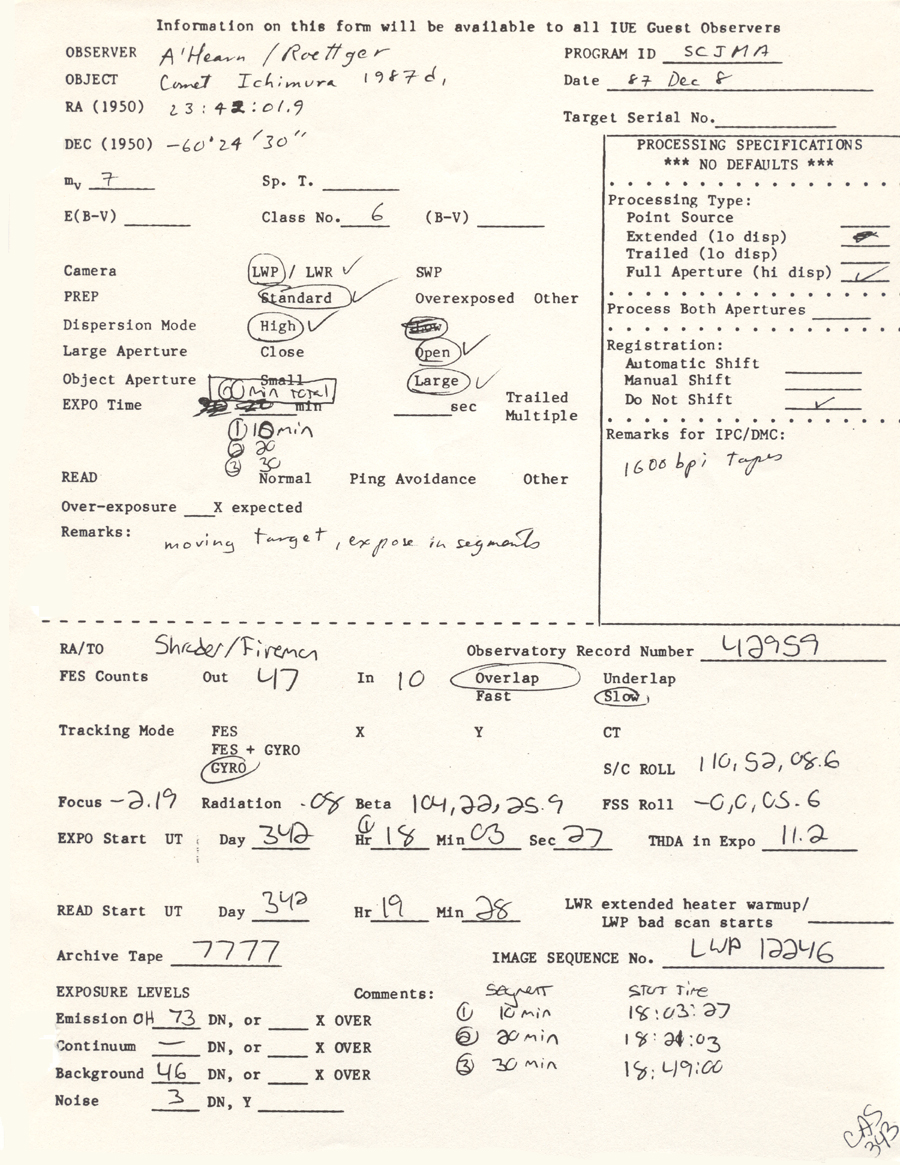 Information on this form will be available to all IUE Guest Observers
OBSERVER A'Hearn / Roettger PROGRAM ID SCJMA
OBJECT Comet Ichimura 1987d, Date 87 Dec 8
RA (1950) 23:42:01.9
Target Serial No.
DEC (1950) -60°24'30"
PROCESSING SPECIFICATIONS
*** NO DEFAULTS ***
mv 7 Sp. T.
Processing Type:
Point Source
E(B-V) Class No. 6 (B-V)
Extended (lo disp)
Trailed (lo disp)
Full Aperture (hi disp) ✓
Camera LWP / LWR ✓ SWP
PREP Standard ✓ Overexposed Other
Process Both Apertures
Dispersion Mode High ✓ Low
Registration:
Large Aperture Close Open ✓
Automatic Shift
Manual Shift
Do Not Shift ✓
Object Aperture Small Large ✓
60 min total
EXPO Time min sec Trailed
Multiple
① 10 min
② 20
③ 30
Remarks for IPC/DMC:
1600 bpi tapes
READ Normal Ping Avoidance Other
Over-exposure X expected
Remarks: moving target, expose in segments
RA/TO Shrader/Fireman Observatory Record Number 42959
FES Counts Out 47 In 10 Overlap Underlap
Fast Slow
Tracking Mode FES X Y CT
FES + GYRO
GYRO S/C ROLL 110,52,08.6
Focus -2.19 Radiation .08 Beta 104,22,25.9 FSS Roll -0,0,05.6
EXPO Start UT Day 342 ① Hr 18 Min 03 Sec 27 THDA in Expo 11.2
READ Start UT Day 342 Hr 19 Min 28 LWR extended heater warmup/
LWP bad scan starts
Archive Tape 7777 IMAGE SEQUENCE No. LWP 12246
EXPOSURE LEVELS Comments: Segment Start Time
Emission OH 73 DN, or X OVER ① 10 min 18:03:27
Continuum — DN, or X OVER ② 20 min 18:21:03
Background 46 DN, or X OVER ③ 30 min 18:49:00
Noise 3 DN, Y
CAS
343